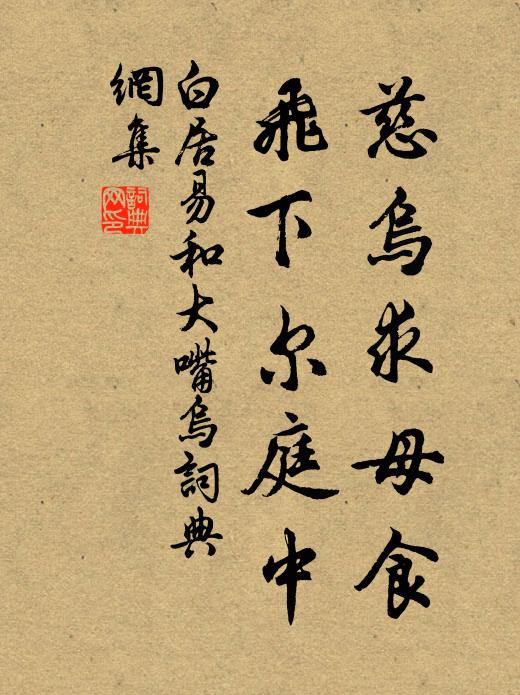 慈烏求母食
飛下尔庭中
白居易和大嘴烏詞典
網集
詞典
网印